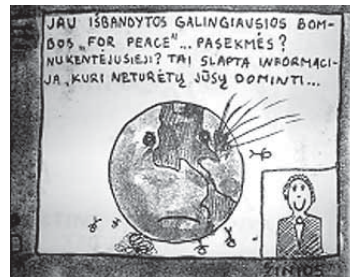 JAU IŠBANDYTOS GALINGIAUSIOS BOM-
BOS „FOR PEACE"... PASEKMĖS?
NUKENTĖJUSIEJI? TAI SLAPTA INFORMACI-
JA, KURI NETURĖTŲ JŪSŲ DOMINTI...